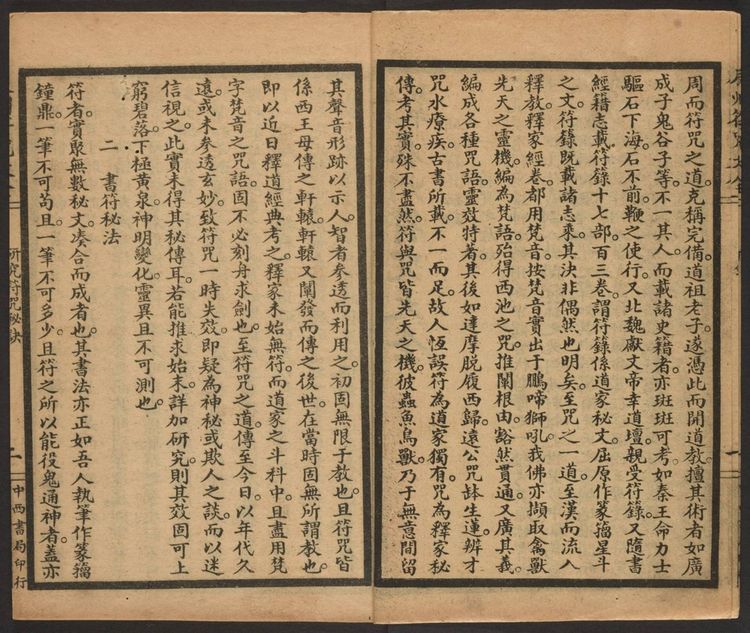 周而符咒之道。克稱完備。道祖老子。遂憑此而開道教。擅其術者。如廣
成子鬼谷子等。不一其人。而載諸史籍者。亦斑斑可考。如秦王命力士
驅石下海。石不前。鞭之使行。又北魏獻文帝幸道壇。親受符籙。又隨書
經籍志。載符籙十七部百三卷。謂符籙係道家秘文。屈原作篆籀星斗
之文。符籙既載諸志乘。其決非偶然也明矣。至咒之一道。至漢而流入
釋教。釋家經卷。都用梵音。按梵音實出于鵬啼獅吼。我佛亦擷取禽獸
先天之靈機。編為梵語。殆得西池之咒。推闡根由。豁然貫通。又廣其義。
編成各種咒語。靈效特著。其後如達摩脫履西歸。遠公咒缽生蓮。辨才
咒水療疾。古書所載。不一而足。故人恆誤符為道家獨有。咒為釋家秘
傳。考其實。殊不盡然。符與咒皆先天之機。彼蟲魚鳥獸。乃于無意間留
其聲音形跡以示人。智者參透而利用之。初固無限于教也。且符咒皆
係西王母傳之軒轅。軒轅又闡發而傳之後世。在當時固無所謂教也。
即以近日釋道經典考之。釋家未始無符。而道家之斗科中。且盡用梵
字梵音之咒語。固不必刻舟求劍也。至符咒之道。傳至今日。以年代久
遠。或未參透玄妙。致符咒一時失效。即疑為神秘或欺人之談。而以迷
信視之。此實未得其秘傳耳。若能推求始末。詳加研究。則其效固可上
窮碧落。下極黃泉。神明變化。靈異且不可測也。
二 書符秘法
符者。實聚無數秘文。湊合而成者也。其書法亦正如吾人執筆作篆籀
鐘鼎。一筆不可苟。且一筆不可多少。且符之所以能役鬼通神者。蓋亦
研究符咒秘訣
一
二
中西書局印行